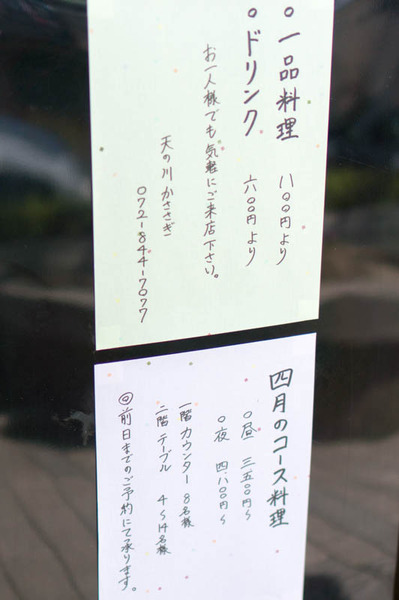 ○一品料理 八〇〇円より
○ドリンク 六〇〇円より
お一人様でも気軽にご来店下さい。
天の川かささぎ
072-844-7077
四月のコース料理
○昼 三五〇〇円〜
○夜 四、八〇〇円〜
一階 カウンター 8名様
二階 テーブル 4〜14名様
◎前日までのご予約にて承ります。